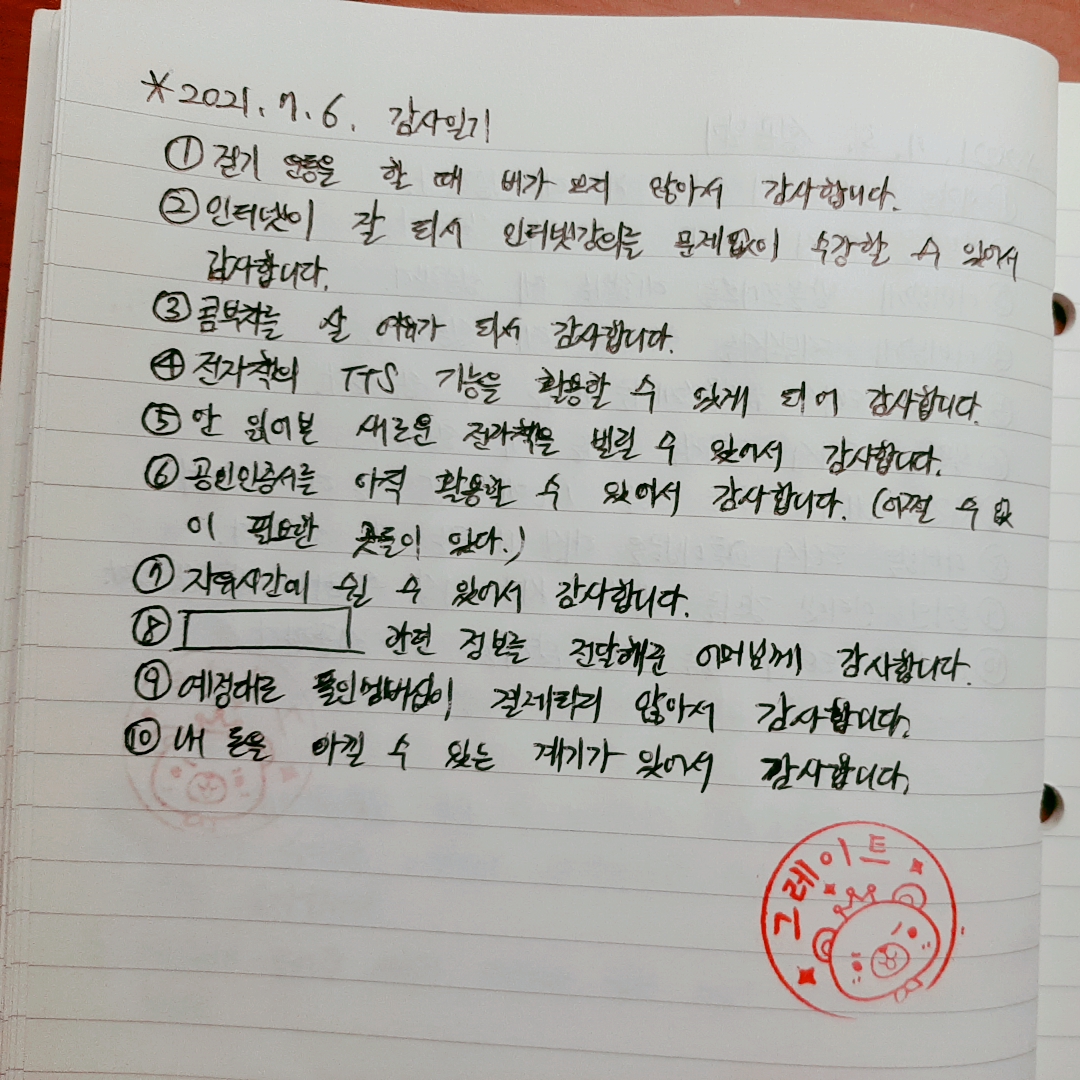 *2021. 7. 6. 감사일기
① 걷기 운동을 할 때 비가 오지 않아서 감사합니다.
② 인터넷이 잘 되서 인터넷강의를 문제없이 수강할 수 있어서
감사합니다.
③ 콤부차를 살 여유가 되서 감사합니다.
④ 전자책의 TTS 기능을 활용할 수 있게 되어 감사합니다.
⑤ 안 읽어본 새로운 전자책을 빌릴 수 있어서 감사합니다.
⑥ 공인인증서를 아직 활용할 수 있어서 감사합니다. (어쩔 수 없
이 필요한 곳들이 있다.)
⑦ 자화시간에 쉴 수 있어서 감사합니다.
⑧ 관련 정보를 전달해준 어머님께 감사합니다.
⑨ 예정대로 멤버십이 결제되지 않아서 감사합니다.
⑩ 내 돈을 아낄 수 있는 계기가 있어서 감사합니다.
그레이트